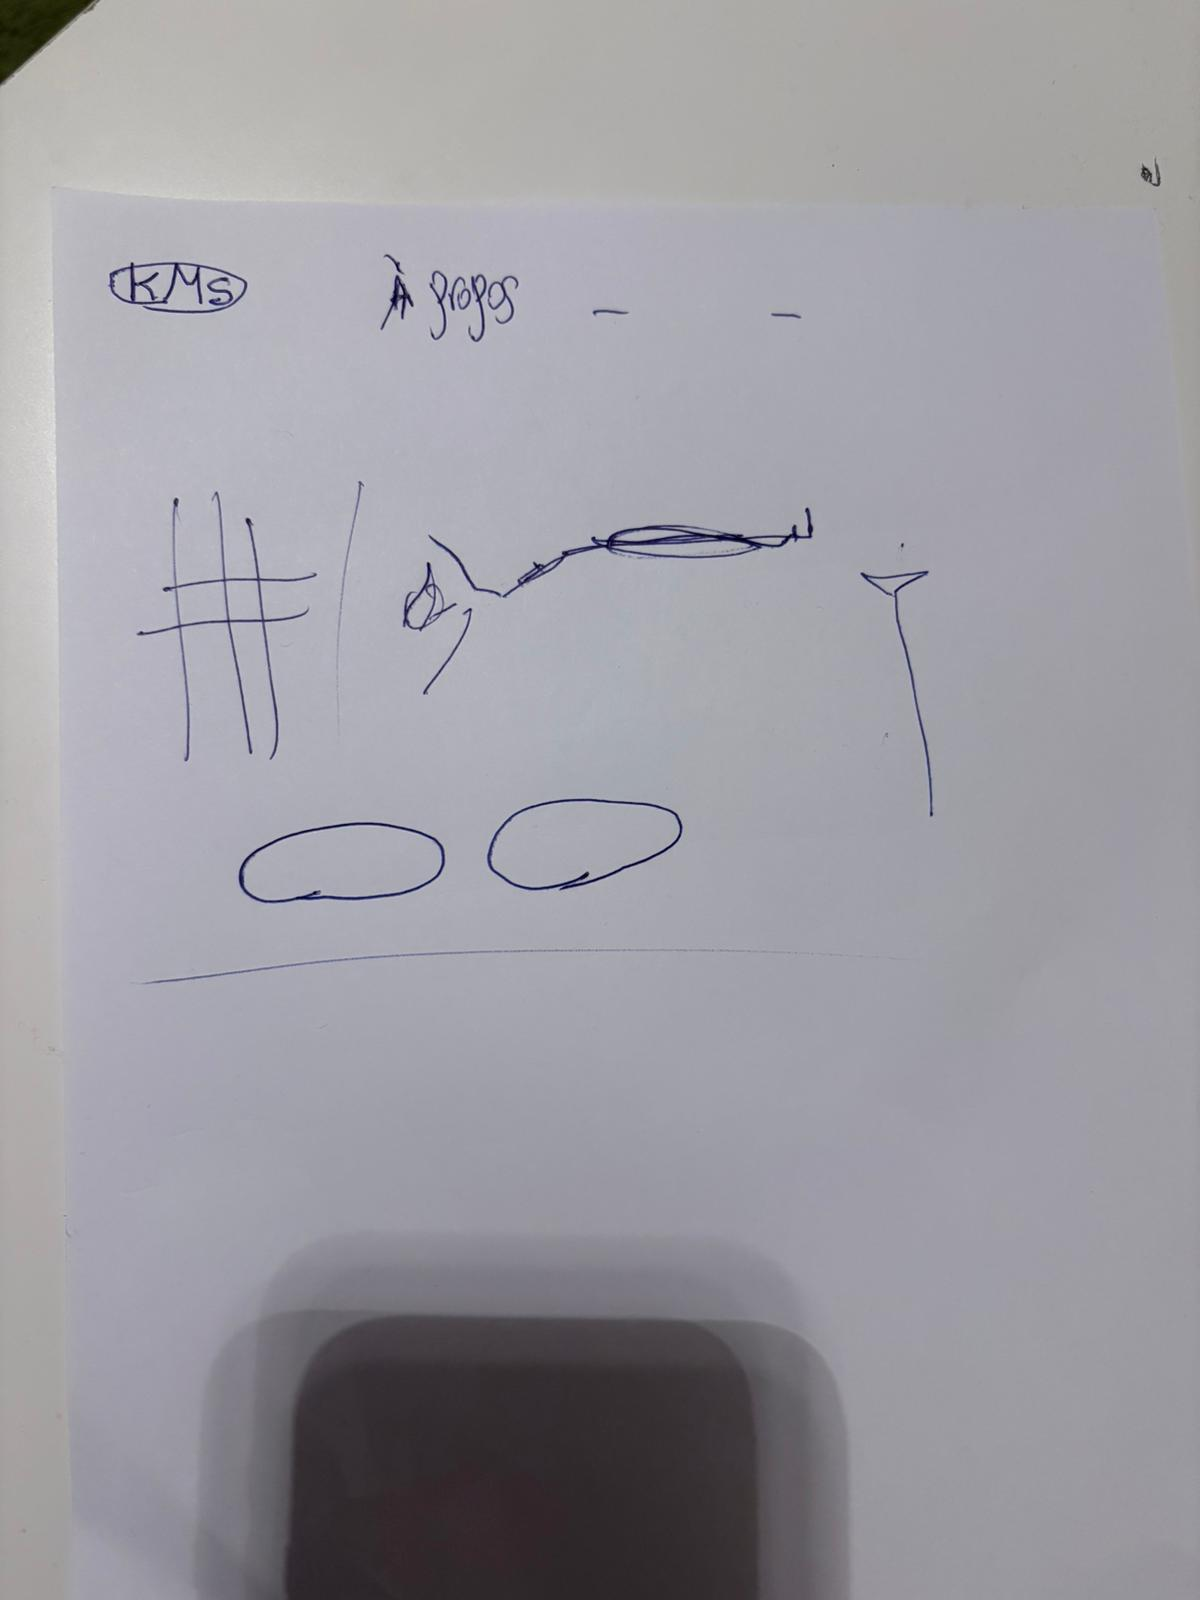 KMS À propos - -